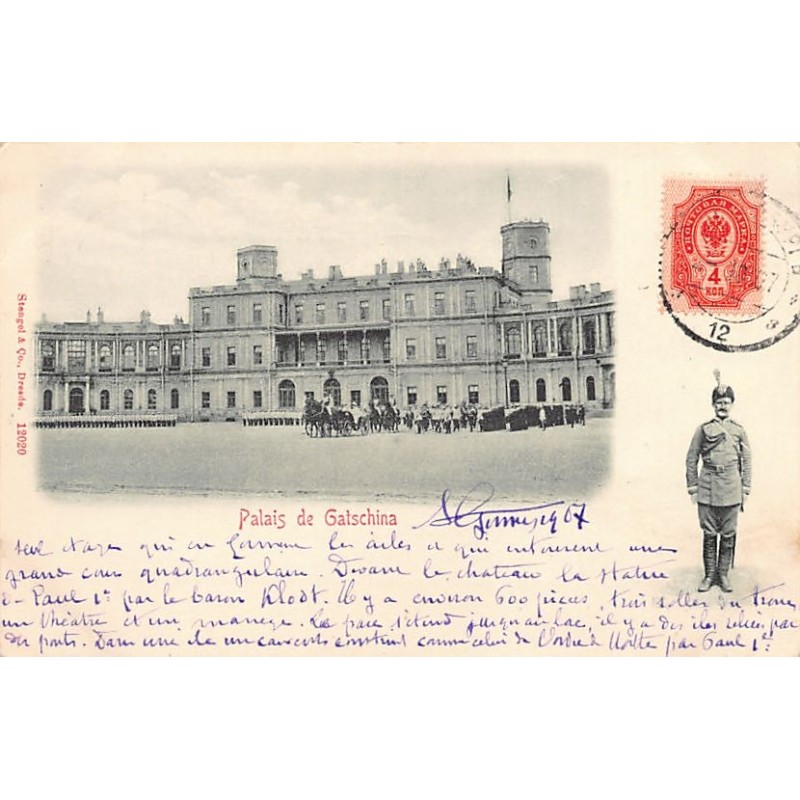 Stengel & Co., Dresde. 12020
ПОЧТОВАЯ МАРКА
4
КОП.
12
Palais de Gatschina
seul étage qui en forment les ailes et qui entourent une
grand cour quadrangulaire. Devant le château la statue
de Paul 1er par le baron Klodt. Il y a environ 600 pièces, trois salles du trone,
un théâtre et un manege. Le parc s'étend jusqu'au lac, il y a des iles reliées par
des ponts. Dans une ile un couvent construit comme celui de l'ordre de Malte par Paul 1er